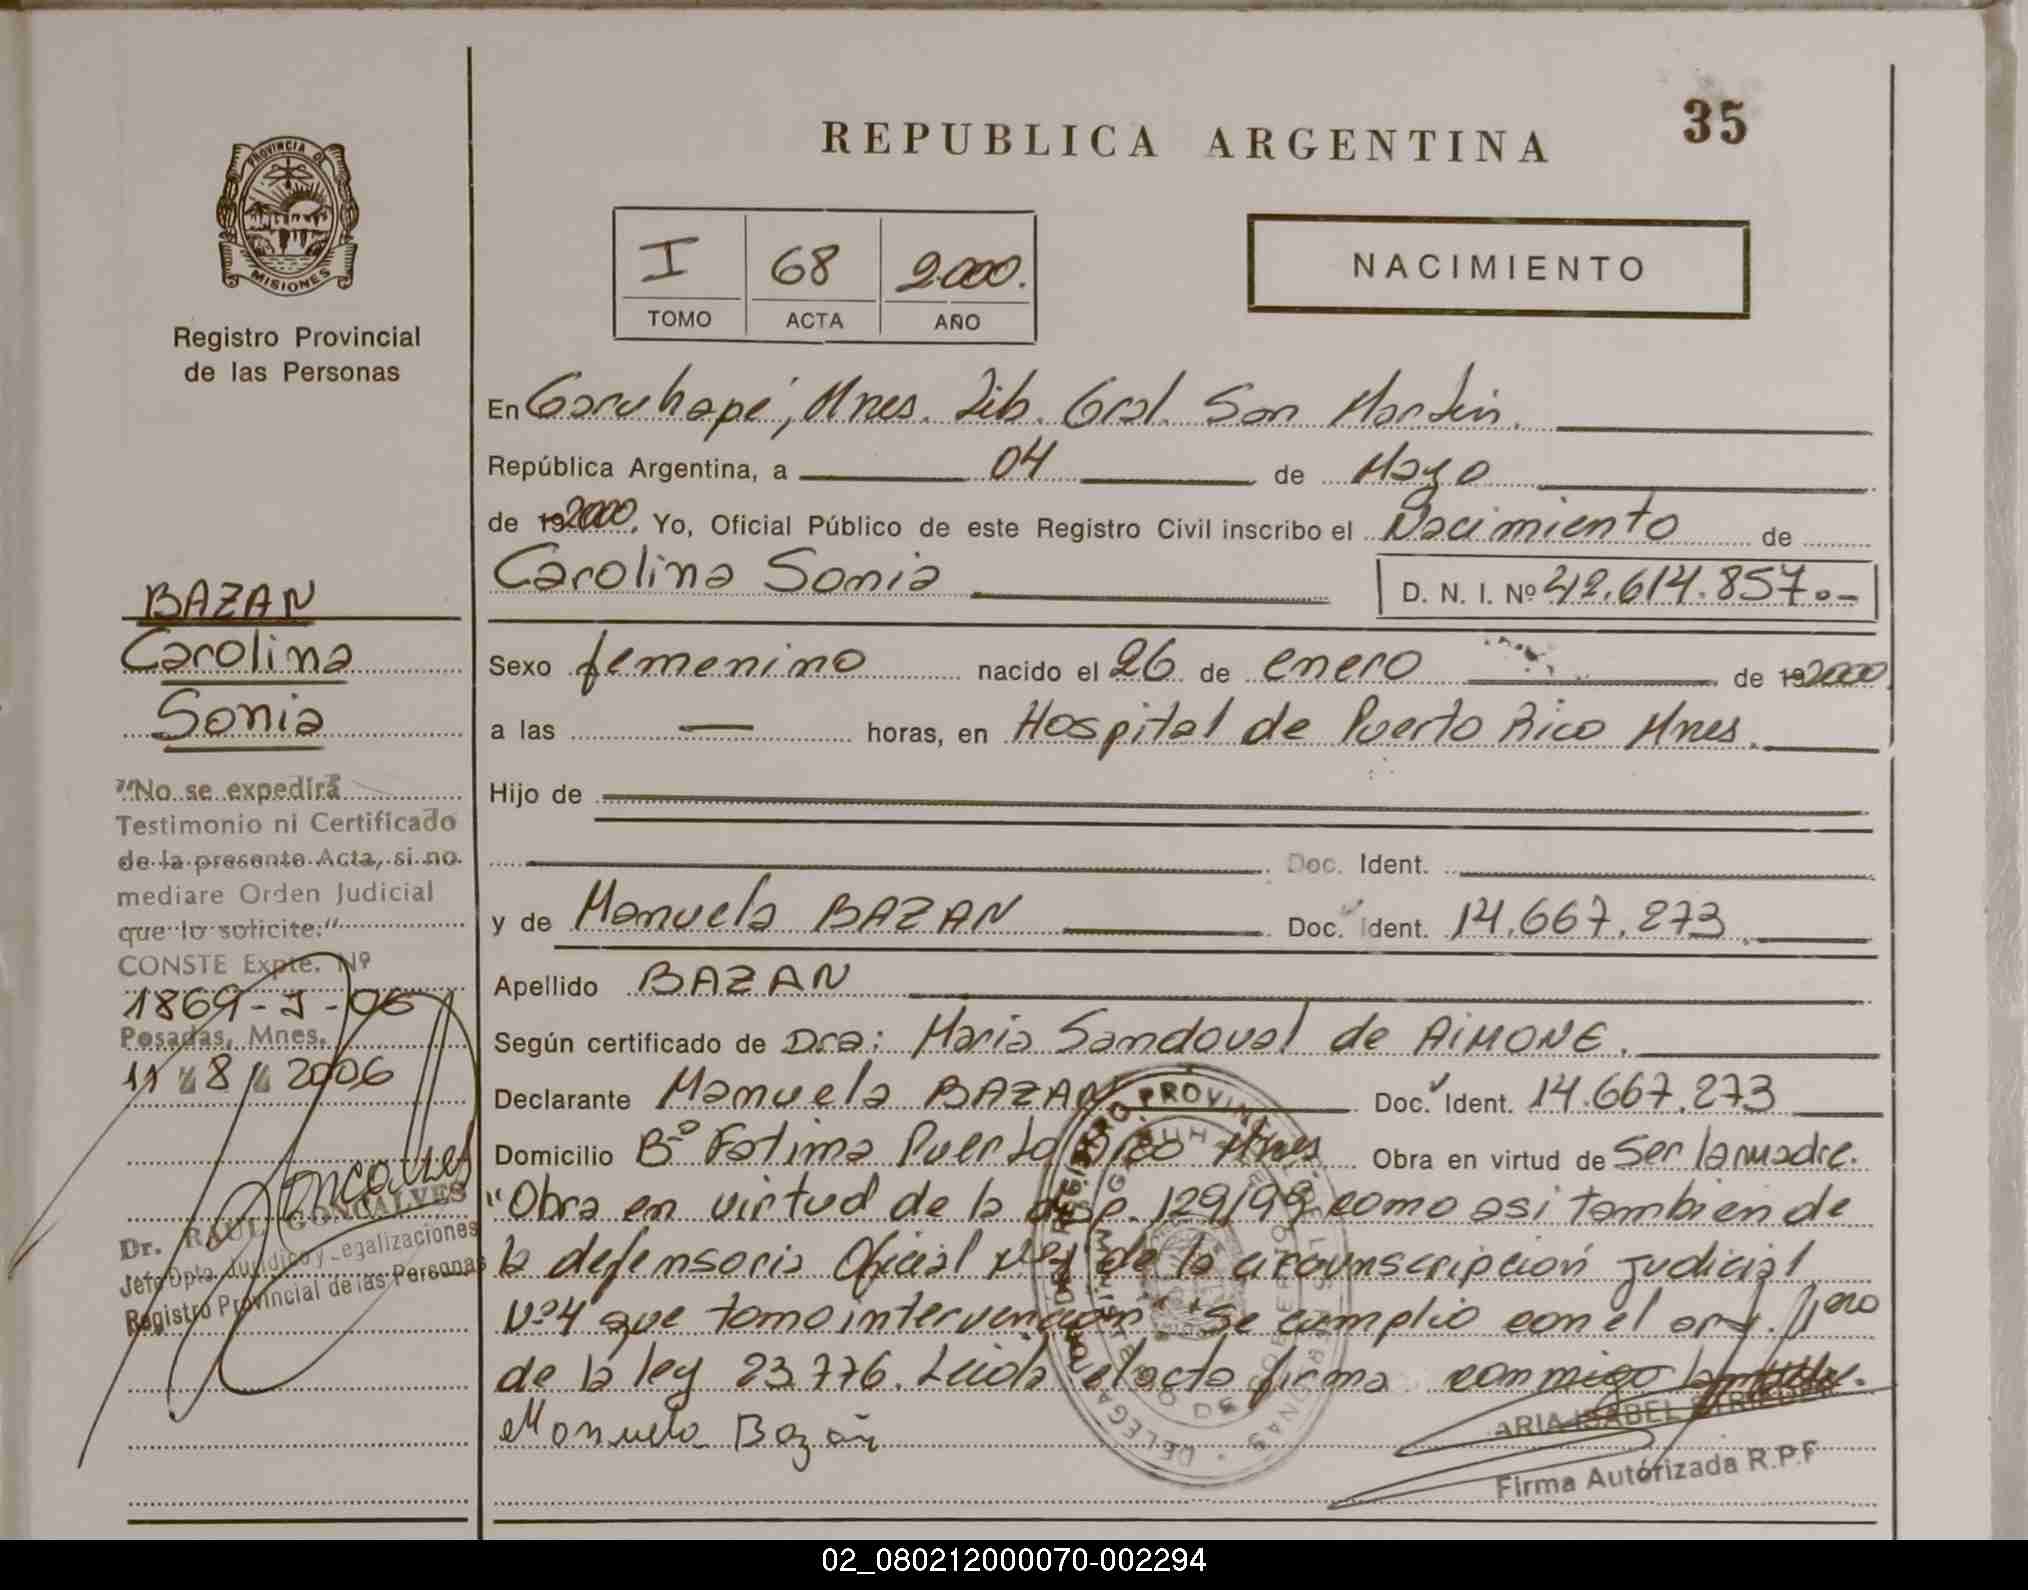 35
REPUBLICA ARGENTINA
PROVINCIA DE
MISIONES
Registro Provincial
de las Personas
I 68 2000.
TOMO ACTA AÑO
NACIMIENTO
En Garuhapé, Mnes. Lib. Gral. San Martín.
República Argentina, a 04 de Mayo
de 19 2000. Yo, Oficial Público de este Registro Civil inscribo el Nacimiento de
Carolina Sonia D. N. I. Nº 42.614.857.-
Sexo femenino nacido el 26 de enero de 19 2000
a las — horas, en Hospital de Puerto Rico Mnes.
Hijo de
Doc. Ident.
y de Manuela BAZAN Doc. Ident. 14.667.273
Apellido BAZAN
Según certificado de Dra: Maria Sandoval de AIMONE.
Declarante Manuela BAZAN Doc. Ident. 14.667.273
Domicilio Bº Fatima Puerto Rico Mnes Obra en virtud de Ser la madre.
"Obra en virtud de la disp. 129/99 como asi tambien de
la defensoria Oficial de la circunscripción judicial
Nº4 que tomo intervencion" Se cumplio con el
de la ley 23.776. Leida el acta firma conmigo
Manuela Bazán
Firma Autorizada R.P.P
BAZAN
Carolina
Sonia
"No se expedirá
Testimonio ni Certificado
de la presente Acta, si no
mediare Orden Judicial
que lo solicite."
CONSTE Expte. Nº
1869-J-06
Posadas, Mnes.
11 8 2006
Dr. RAUL GONCALVES
Jefe Dpto. Jurídico y Legalizaciones
Registro Provincial de las Personas
02_080212000070-002294